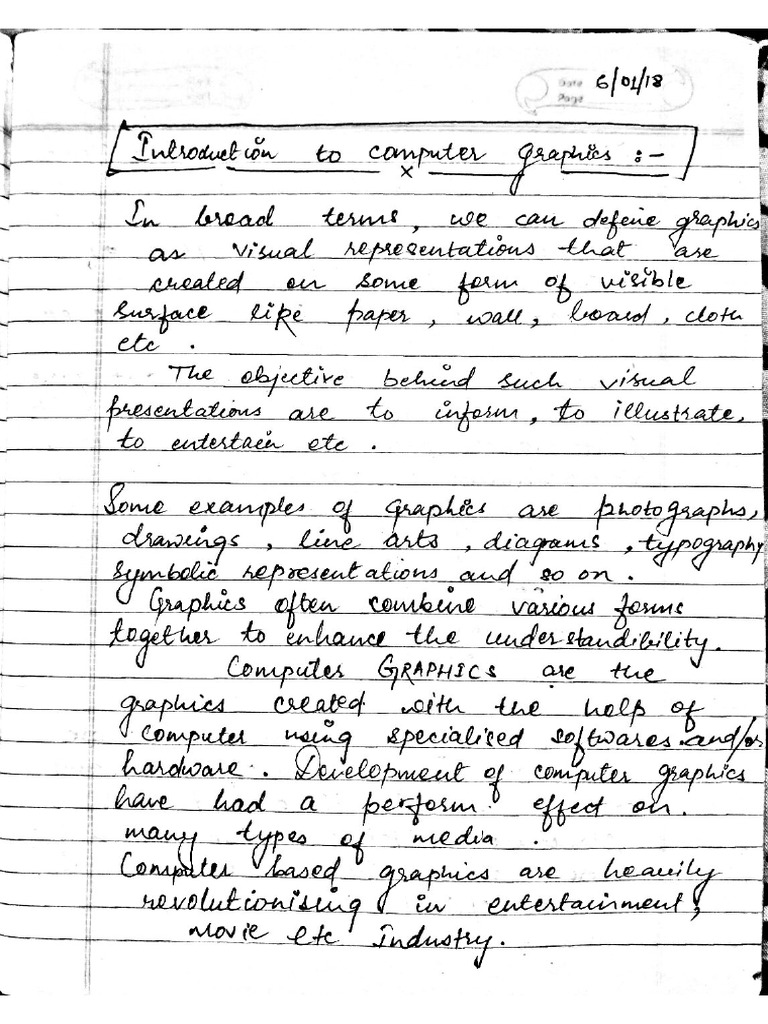 Date 6/01/18
Page
Introduction to computer graphics :-
In broad terms, we can define graphics
as visual representations that are
created on some form of visible
surface like paper, wall, board, cloth
etc.
The objective behind such visual
presentations are to inform, to illustrate,
to entertain etc.
Some examples of graphics are photographs,
drawings, line arts, diagams, typography
symbolic representations and so on.
Graphics often combine various forms
together to enhance the understandibility.
Computer GRAPHICS are the
graphics created with the help of
computer using specialised softwares and/or
hardware. Development of computer graphics
have had a perform effect on.
many types of media.
Computer based graphics are heavily
revolutionising in entertainment,
Movie etc Industry.